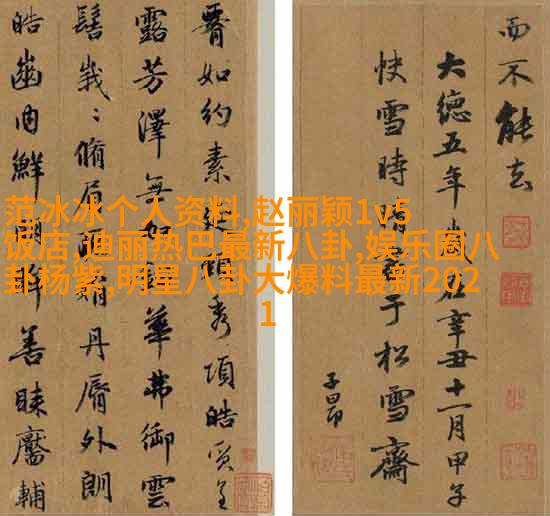 范冰冰个人资料,赵丽颖1v5
饭店,迪丽热巴最新八卦,娱乐圈八
卦杨紫,明星八卦大爆料最新202
1
而不能去
大德五年在辛丑十一月甲子
快雪時晴于松雪齋
子昂
如約素延秀項皓質呈
露芳澤無華弗御雲
髻峩〻脩眉娟丹脣外朗
皓齒内鮮明善睞靨輔